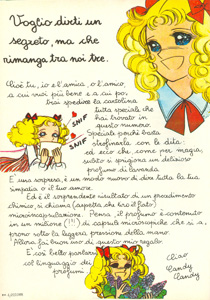 Voglio dirti un
segreto, ma che
rimanga tra noi tre.
Cioè tu, io e l'amica, o l'amico,
a cui vuoi più bene e a cui po-
trai spedire la cartolina
tutta speciale che
hai trovato in
questo numero.
Speciale perché basta
strofinarla con le dita
ed ecco che come per magia,
subito si sprigiona un delizioso
profumo di lavanda.
SNIF
SNIFF
È una sorpresa, è un modo nuovo di dire tutta la tua
simpatia o il tuo amore.
Ed è il sorprendente risultato di un procedimento
chimico, si chiama (aspetta che tiro il fiato)
microincapsulazione. Pensa, il profumo è contenuto
in un milione (!!!) di capsule microscopiche che si a-
prono sotto la leggera pressione della mano.
Allora, fai buon uso di questo mio regalo.
È così bello parlare
col linguaggio dei
profumi.
Ciao
Candy
Candy